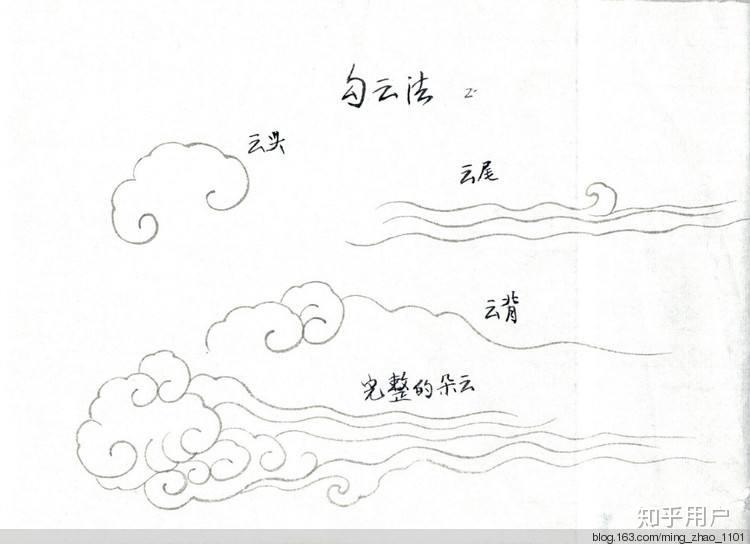 勾云法 2.
云头
云尾
云背
完整的朵云
知乎用户
blog.163.com/ming_zhao_1101